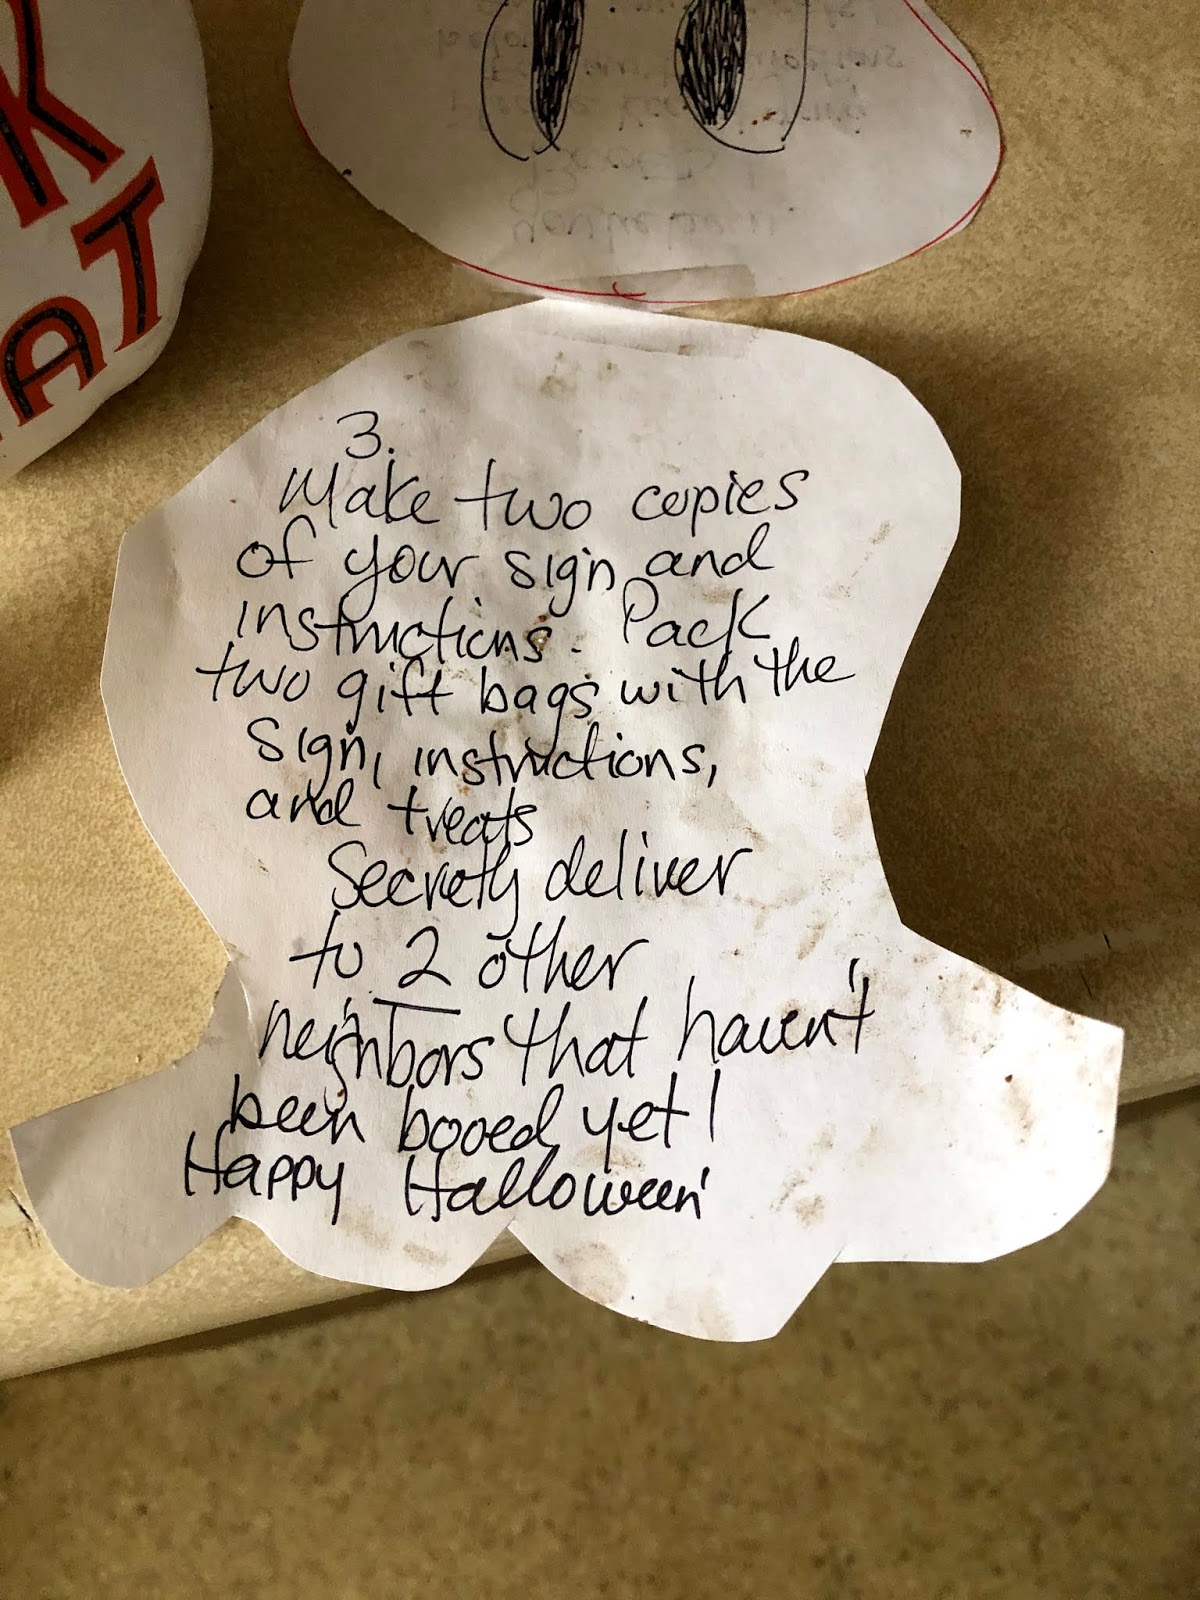 K
AT
3.
Make two copies
of your sign and
instructions. Pack
two gift bags with the
sign, instructions,
and treats
Secretly deliver
to 2 other
neighbors that haven't
been booed yet!
Happy Halloween!